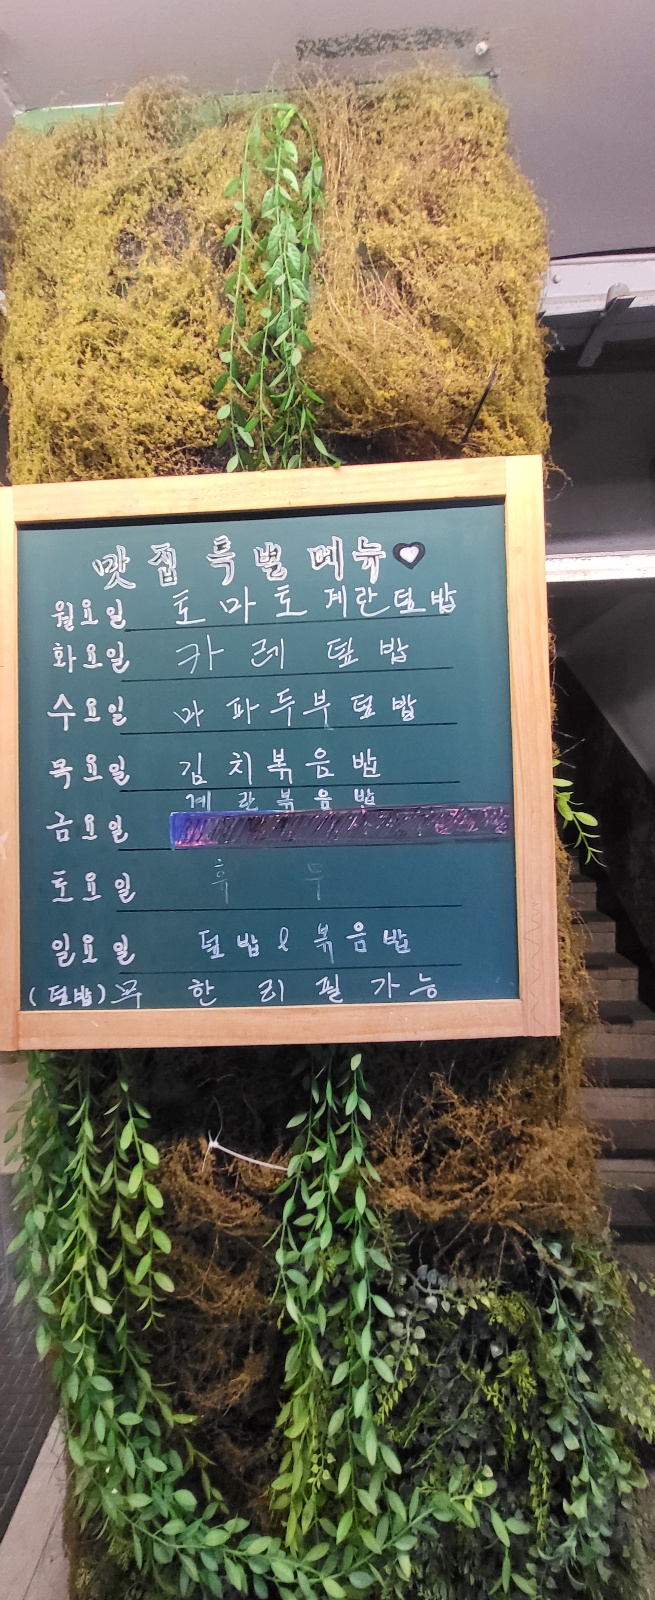 맛집 특별 메뉴
월요일 토마토 계란덮밥
화요일 카레 덮밥
수요일 마파두부 덮밥
목요일 김치볶음밥
계란볶음밥
금요일
토요일 휴무
일요일 덮밥 & 볶음밥
(덮밥) 무한리필 가능